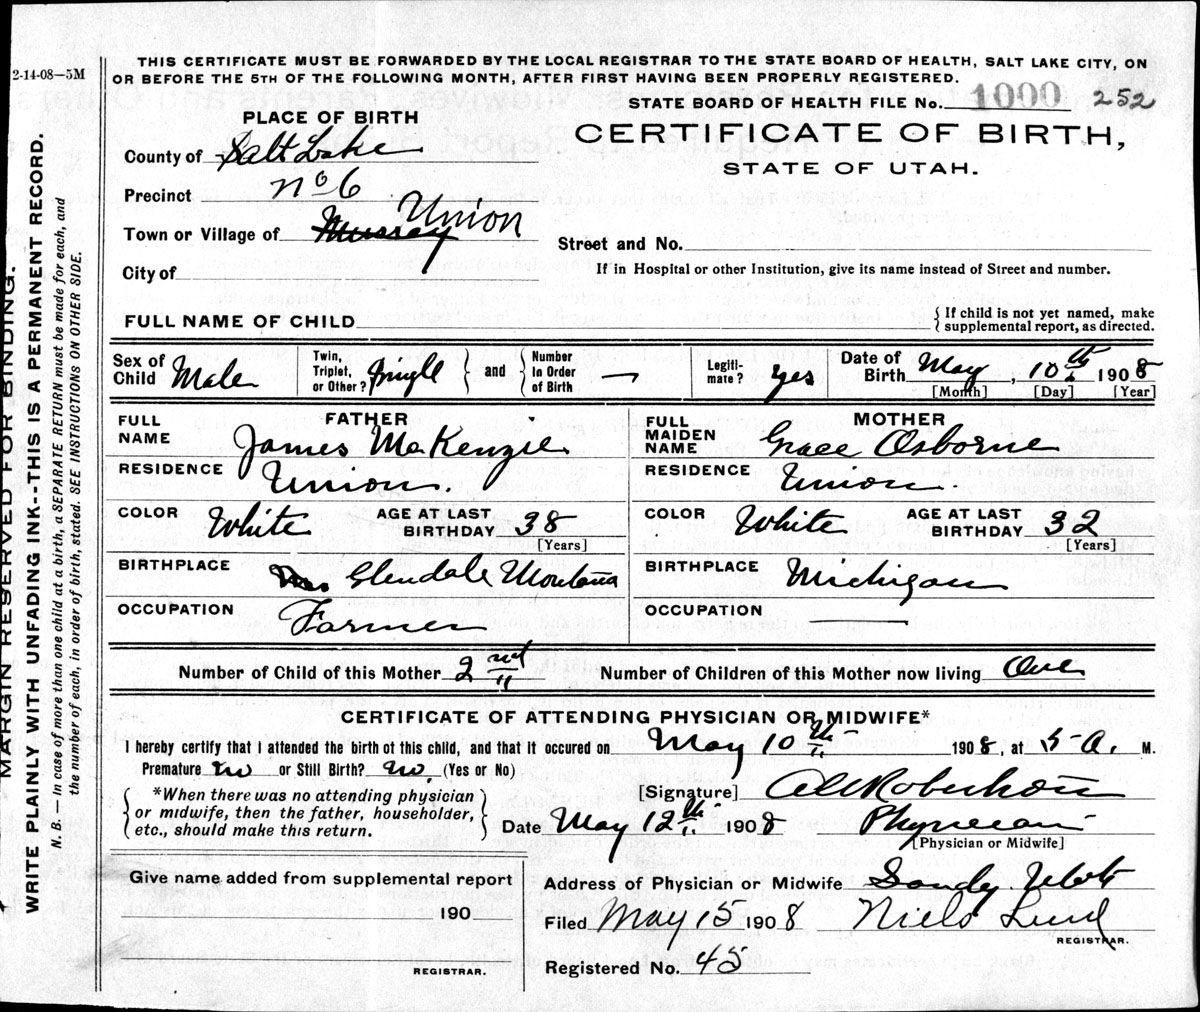 2-14-08—5M
THIS CERTIFICATE MUST BE FORWARDED BY THE LOCAL REGISTRAR TO THE STATE BOARD OF HEALTH, SALT LAKE CITY, ON
OR BEFORE THE 5TH OF THE FOLLOWING MONTH, AFTER FIRST HAVING BEEN PROPERLY REGISTERED.
STATE BOARD OF HEALTH FILE No. 1000 252
PLACE OF BIRTH
CERTIFICATE OF BIRTH,
STATE OF UTAH.
County of Salt Lake
Precinct No 6
Town or Village of Murray Union
Street and No.
City of
If in Hospital or other Institution, give its name instead of Street and number.
FULL NAME OF CHILD
{ If child is not yet named, make
supplemental report, as directed.
Sex of Child Male
Twin, Triplet, or Other? Single } and { Number In Order of Birth —
Legiti- mate? yes
Date of Birth May, 10th 1908
[Month] [Day] [Year]
FATHER
FULL NAME James McKenzie
RESIDENCE Union.
COLOR White AGE AT LAST BIRTHDAY 38
[Years]
BIRTHPLACE Glendale Montana
OCCUPATION Farmer
MOTHER
FULL MAIDEN NAME Grace Osborne
RESIDENCE Union.
COLOR White AGE AT LAST BIRTHDAY 32
[Years]
BIRTHPLACE Michigan
OCCUPATION —
Number of Child of this Mother 2nd
Number of Children of this Mother now living One
CERTIFICATE OF ATTENDING PHYSICIAN OR MIDWIFE*
I hereby certify that I attended the birth of this child, and that it occured on May 10th 1908, at 5 A. M.
Premature no or Still Birth? no, (Yes or No)
{ *When there was no attending physician
or midwife, then the father, householder,
etc., should make this return. }
[Signature] Robertson
Date May 12th 1908 Physician
[Physician or Midwife]
Give name added from supplemental report
190
REGISTRAR.
Address of Physician or Midwife Sandy Utah
Filed May 15 1908 Niels Lind
REGISTRAR.
Registered No. 45
MARGIN RESERVED FOR BINDING.
WRITE PLAINLY WITH UNFADING INK--THIS IS A PERMANENT RECORD.
N. B.—In case of more than one child at a birth, a SEPARATE RETURN must be made for each, and
the number of each, in order of birth, stated. SEE INSTRUCTIONS ON OTHER SIDE.